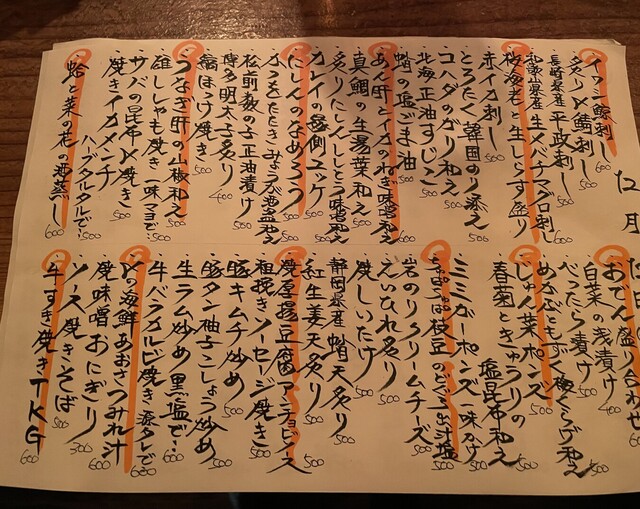 12月
イワシ鯨刺し 600
炙り〆鯖刺し 500
長崎県産 平政刺し 500
和歌山県産 生メバチマグロ刺し 500
桜海老と生しらす盛り
赤イカ刺し 500
とろたく 韓国のり添え 500
コハダのガリ和え 500
北海正油すじこ 500
蛸の塩ごま油 500
あん肝とイカのねぎ味噌和え
真鯛の生湯葉和え 500
炙りにしんしとう味噌和え
カレイの縁側ユッケ 500
にしんのなめろう 500
かつをたたきみょうが酒盗和え
松前数の子正油漬け 500
博多明太子炙り 400
縞ほっけ焼き 500
うなぎ肝の山椒和え 500
雄ししゃも焼き 一味マヨで… 500
サバの昆布〆焼き 500
焼きイカメンチ
ハーブタルタルで… 500
蛤と菜の花の酒蒸し 600
おでん盛り合わせ 600
白菜の浅漬け 400
べったら漬け 500
めかぶもずく 和え 500
じゅん菜ポンズ 500
春菊ときゅうりの
塩昆布和え 500
ミミガーポンズ 一味かけ 500
枝豆の 出汁塩 500
岩のりクリームチーズ 500
えいひれ炙り 500
焼しいたけ 500
静岡県産 蛸天炙り 500
紅生姜天炙り 500
焼厚揚豆腐アンチョビソース 500
粗挽きソーセージ焼き 500
豚キムチ炒め 500
豚タン柚子こしょう炒め 500
生ラム炒め 黒塩で… 500
牛ベラカルビ焼き 添タレで 600
〆の海鮮あおさつみれ汁 600
焼味噌おにぎり 300
ソース焼きそば 500
牛すき焼きTKG 600